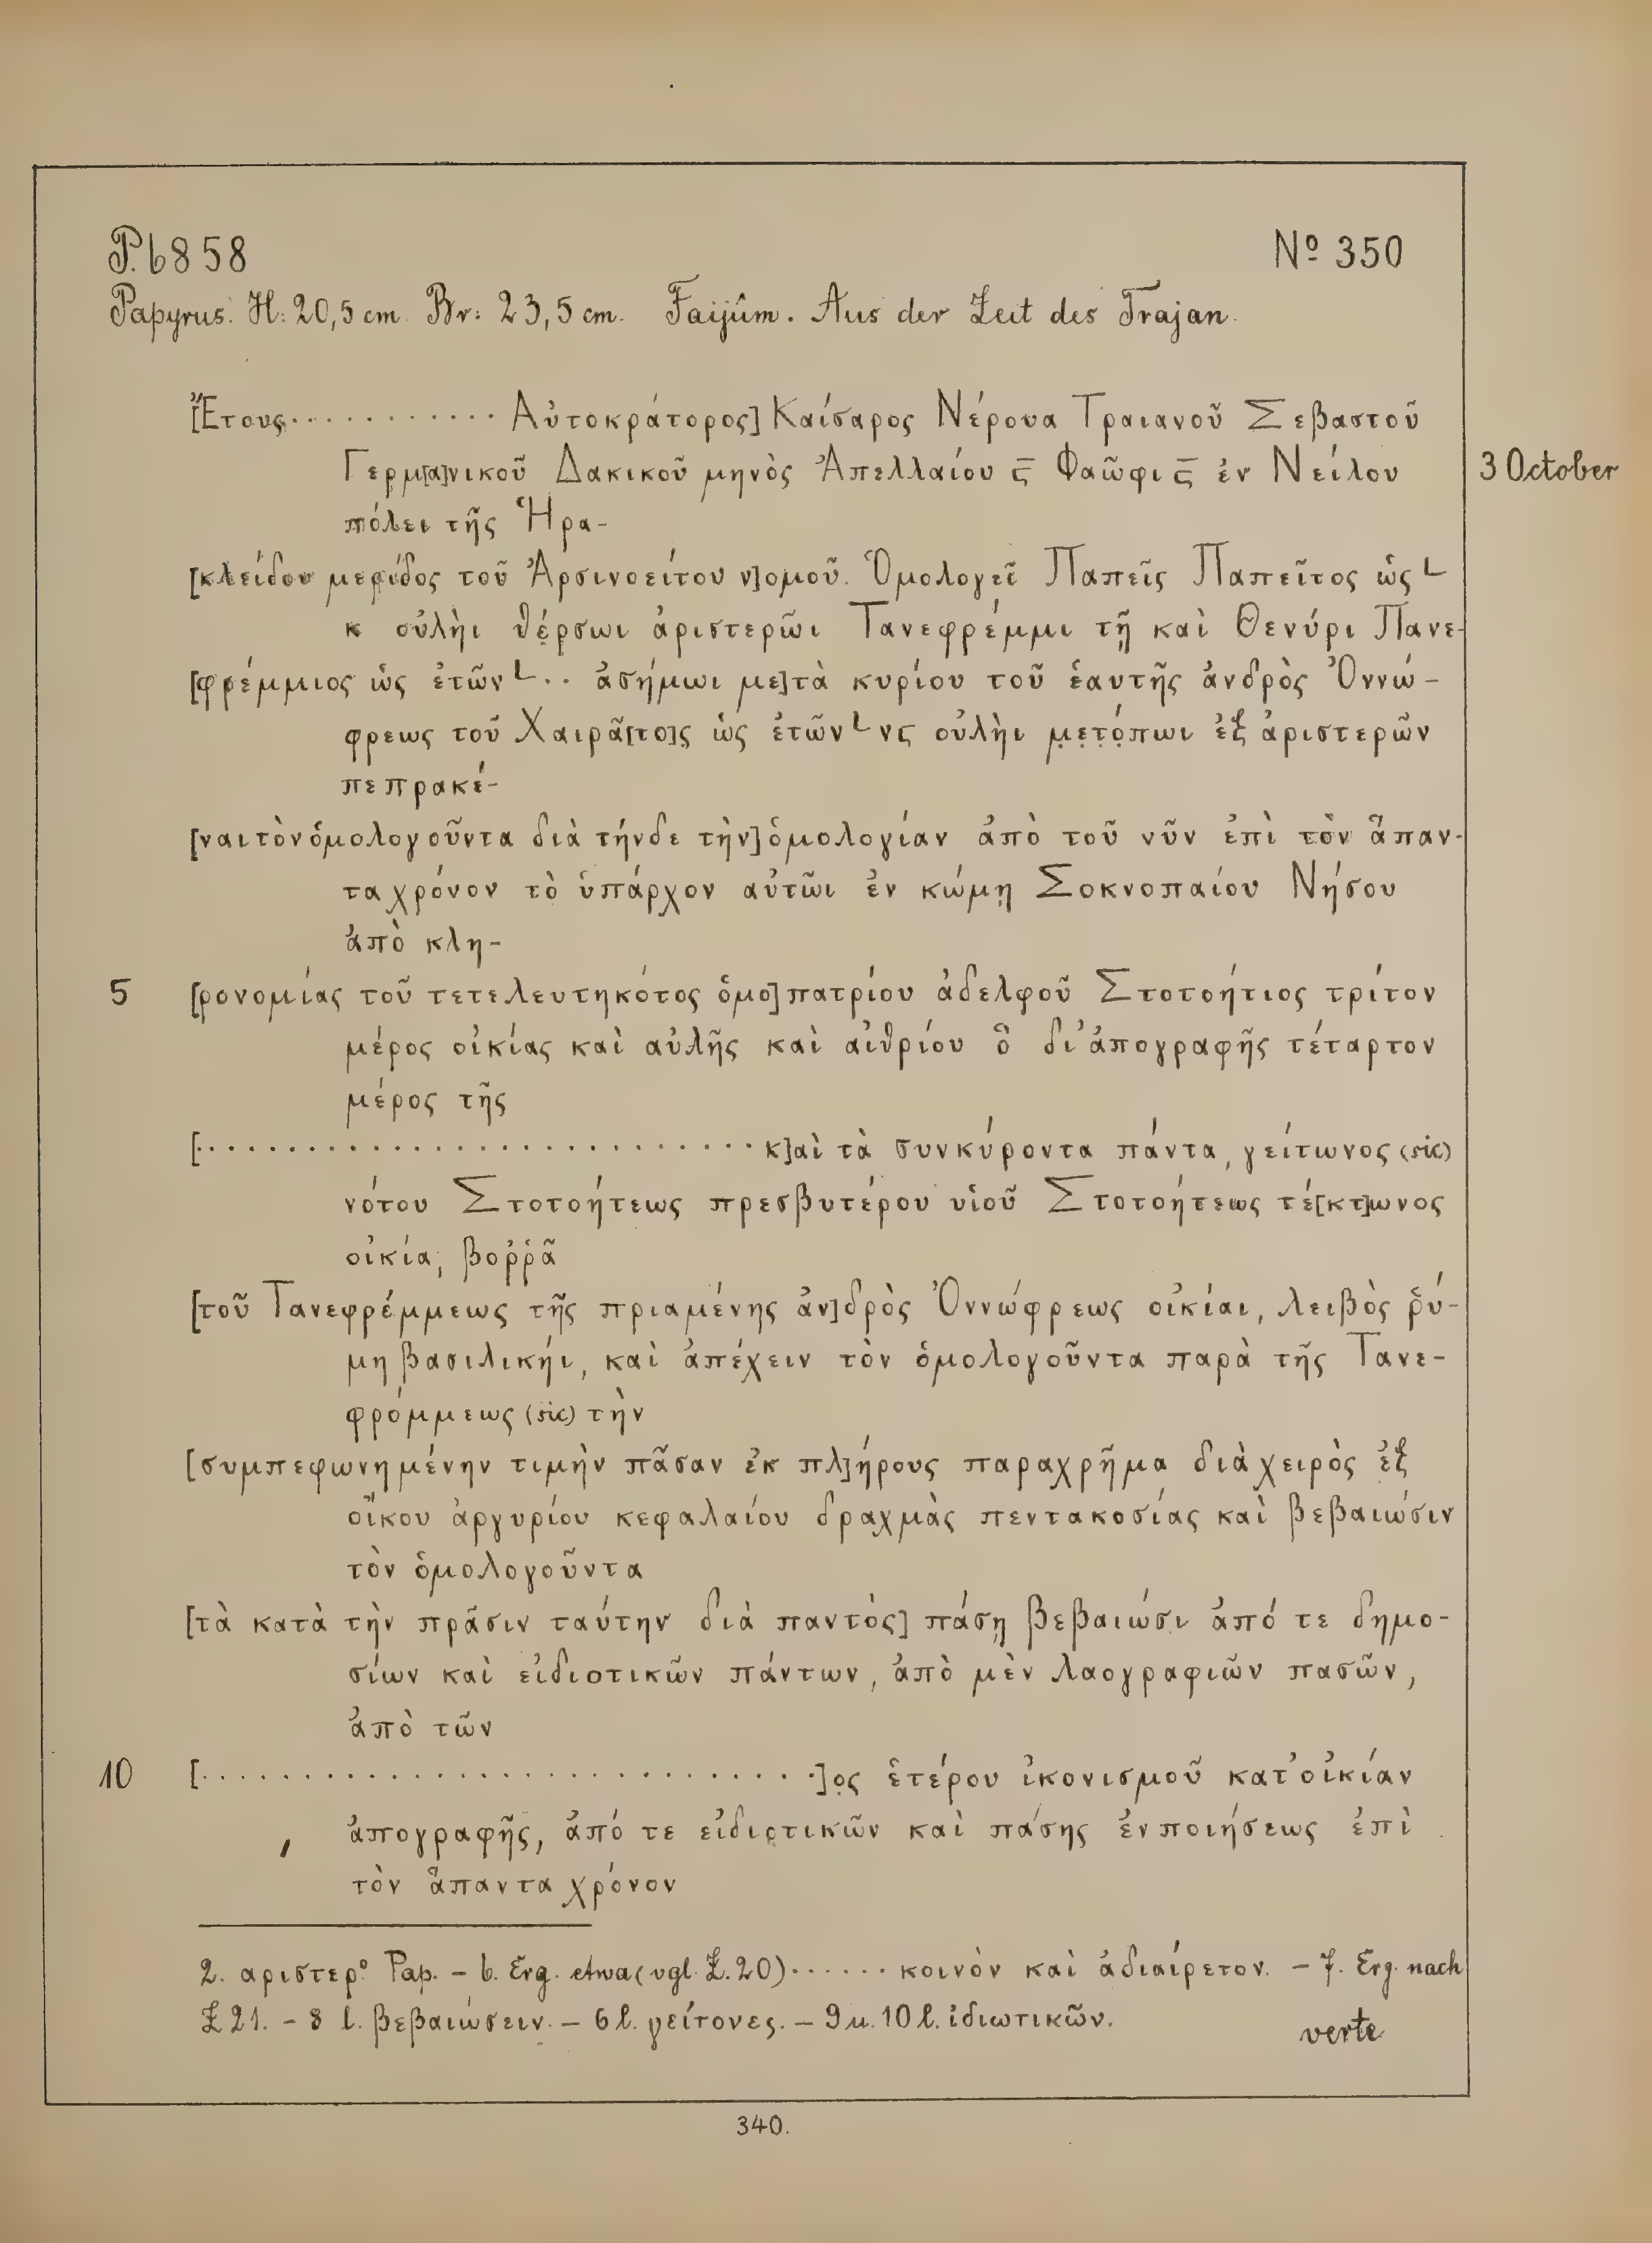 P. 6858 Nº 350
Papyrus. H: 20,5 cm. Br: 23,5 cm. Faijûm. Aus der Zeit des Trajan.
[Ἔτους ............ Αὐτοκράτορος] Καίσαρος Νέρουα Τραιανοῦ Σεβαστοῦ
Γερμ[α]νικοῦ Δακικοῦ μηνὸς Ἀπελλαίου ϛ̅ Φαῶφι ϛ̅ ἐν Νείλου 3 October
πόλει τῆς Ἡρα-
[κλείδου μερίδος τοῦ Ἀρσινοείτου ν]ομοῦ. Ὁμολογεῖ Παπεῖς Παπεῖτος ὡς L
κ οὐλὴι θέρσωι ἀριστερῶι Τανεφρέμμι τῇ καὶ Θενύρι Πανε-
[φρέμμιος ὡς ἐτῶν L .. ἀσήμωι με]τὰ κυρίου τοῦ ἑαυτῆς ἀνδρὸς Ὀννώ-
φρεως τοῦ Χαιρᾶ[το]ς ὡς ἐτῶν L νϛ οὐλὴι μ̣ε̣τ̣ό̣πωι ἐξ ἀριστερῶν
πεπρακέ-
[ναι τὸν ὁμολογοῦντα διὰ τήνδε τὴν] ὁμολογίαν ἀπὸ τοῦ νῦν ἐπὶ τὸν ἅπαν-
τα χρόνον τὸ ὑπάρχον αὐτῶι ἐν κώμῃ Σοκνοπαίου Νήσου
ἀπὸ κλη-
5 [ρονομίας τοῦ τετελευτηκότος ὁμο]πατρίου ἀδελφοῦ Στοτοήτιος τρίτον
μέρος οἰκίας καὶ αὐλῆς καὶ αἰθρίου ὃ δι' ἀπογραφῆς τέταρτον
μέρος τῆς
[............................ κ]αὶ τὰ συνκύροντα πάντα, γείτωνος (sic)
νότου Στοτοήτεως πρεσβυτέρου υἱοῦ Στοτοήτεως τέ[κτ]ωνος
οἰκία, βοῤῥᾶ
[τοῦ Τανεφρέμμεως τῆς πριαμένης ἀν]δρὸς Ὀννώφρεως οἰκίαι, λειβὸς ῥύ-
μη βασιλικήι, καὶ ἀπέχειν τὸν ὁμολογοῦντα παρὰ τῆς Τανε-
φρόμμεως (sic) τὴν
[συμπεφωνημένην τιμὴν πᾶσαν ἐκ πλ]ήρους παραχρῆμα διὰ χειρὸς ἐξ
οἴκου ἀργυρίου κεφαλαίου δραχμὰς πεντακοσίας καὶ βεβαιώσιν
τὸν ὁμολογοῦντα
[τὰ κατὰ τὴν πρᾶσιν ταύτην διὰ παντὸς] πάσῃ βεβαιώσι ἀπό τε δημο-
σίων καὶ εἰδιοτικῶν πάντων, ἀπὸ μὲν λαογραφιῶν πασῶν,
ἀπὸ τῶν
10 [.............................]ο̣ς ἑτέρου ἰκονισμοῦ κατ' οἰκίαν
ἀπογραφῆς, ἀπό τε εἰδιοτικῶν καὶ πάσης ἐνποιήσεως ἐπὶ
τὸν ἅπαντα χρόνον
2. αριστερº Pap. – 6. Erg. etwa (vgl. Z. 20) ...... κοινὸν καὶ ἀδιαίρετον. – 7. Erg. nach
Z 21. – 8 l. βεβαιώσειν. – 6 l. γείτονες. – 9 u. 10 l. ἰδιωτικῶν.
verte
340.